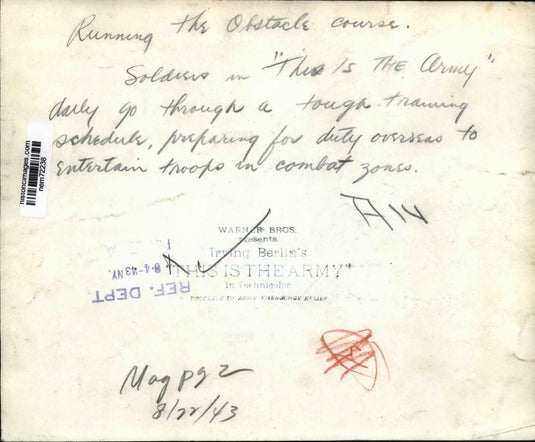 Running the Obstacle course.
Soldiers in "This Is THE Army"
daily go through a tough training
schedule, preparing for duty overseas to
entertain troops in combat zones.
historicimages.com
nem72238
WARNER BROS.
Presents
Irving Berlin's
"THIS IS THE ARMY"
in Technicolor
PROCEEDS TO ARMY EMERGENCY RELIEF
REF. DEPT
8-4-43 NY.
Mag pg 2
8/22/43